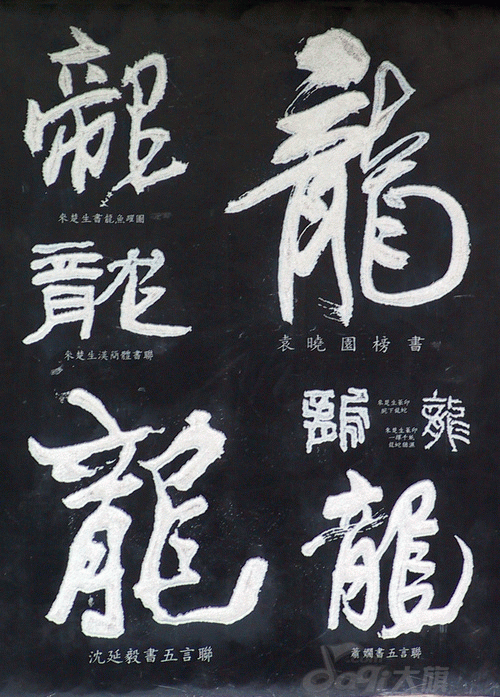 龍
來楚生書龍魚曜圖
龍
來楚生漢簡體書聯
龍
沈延毅書五言聯
龍
袁曉園榜書
龍
來楚生篆印
腕下龍蛇
來楚生篆印
一揮千紙
龍蛇猶濕
龍
龍
蕭嫻書五言聯
大旗